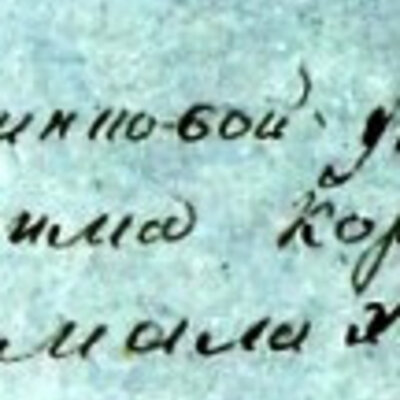 инпо-бой у
има Кор
мала х